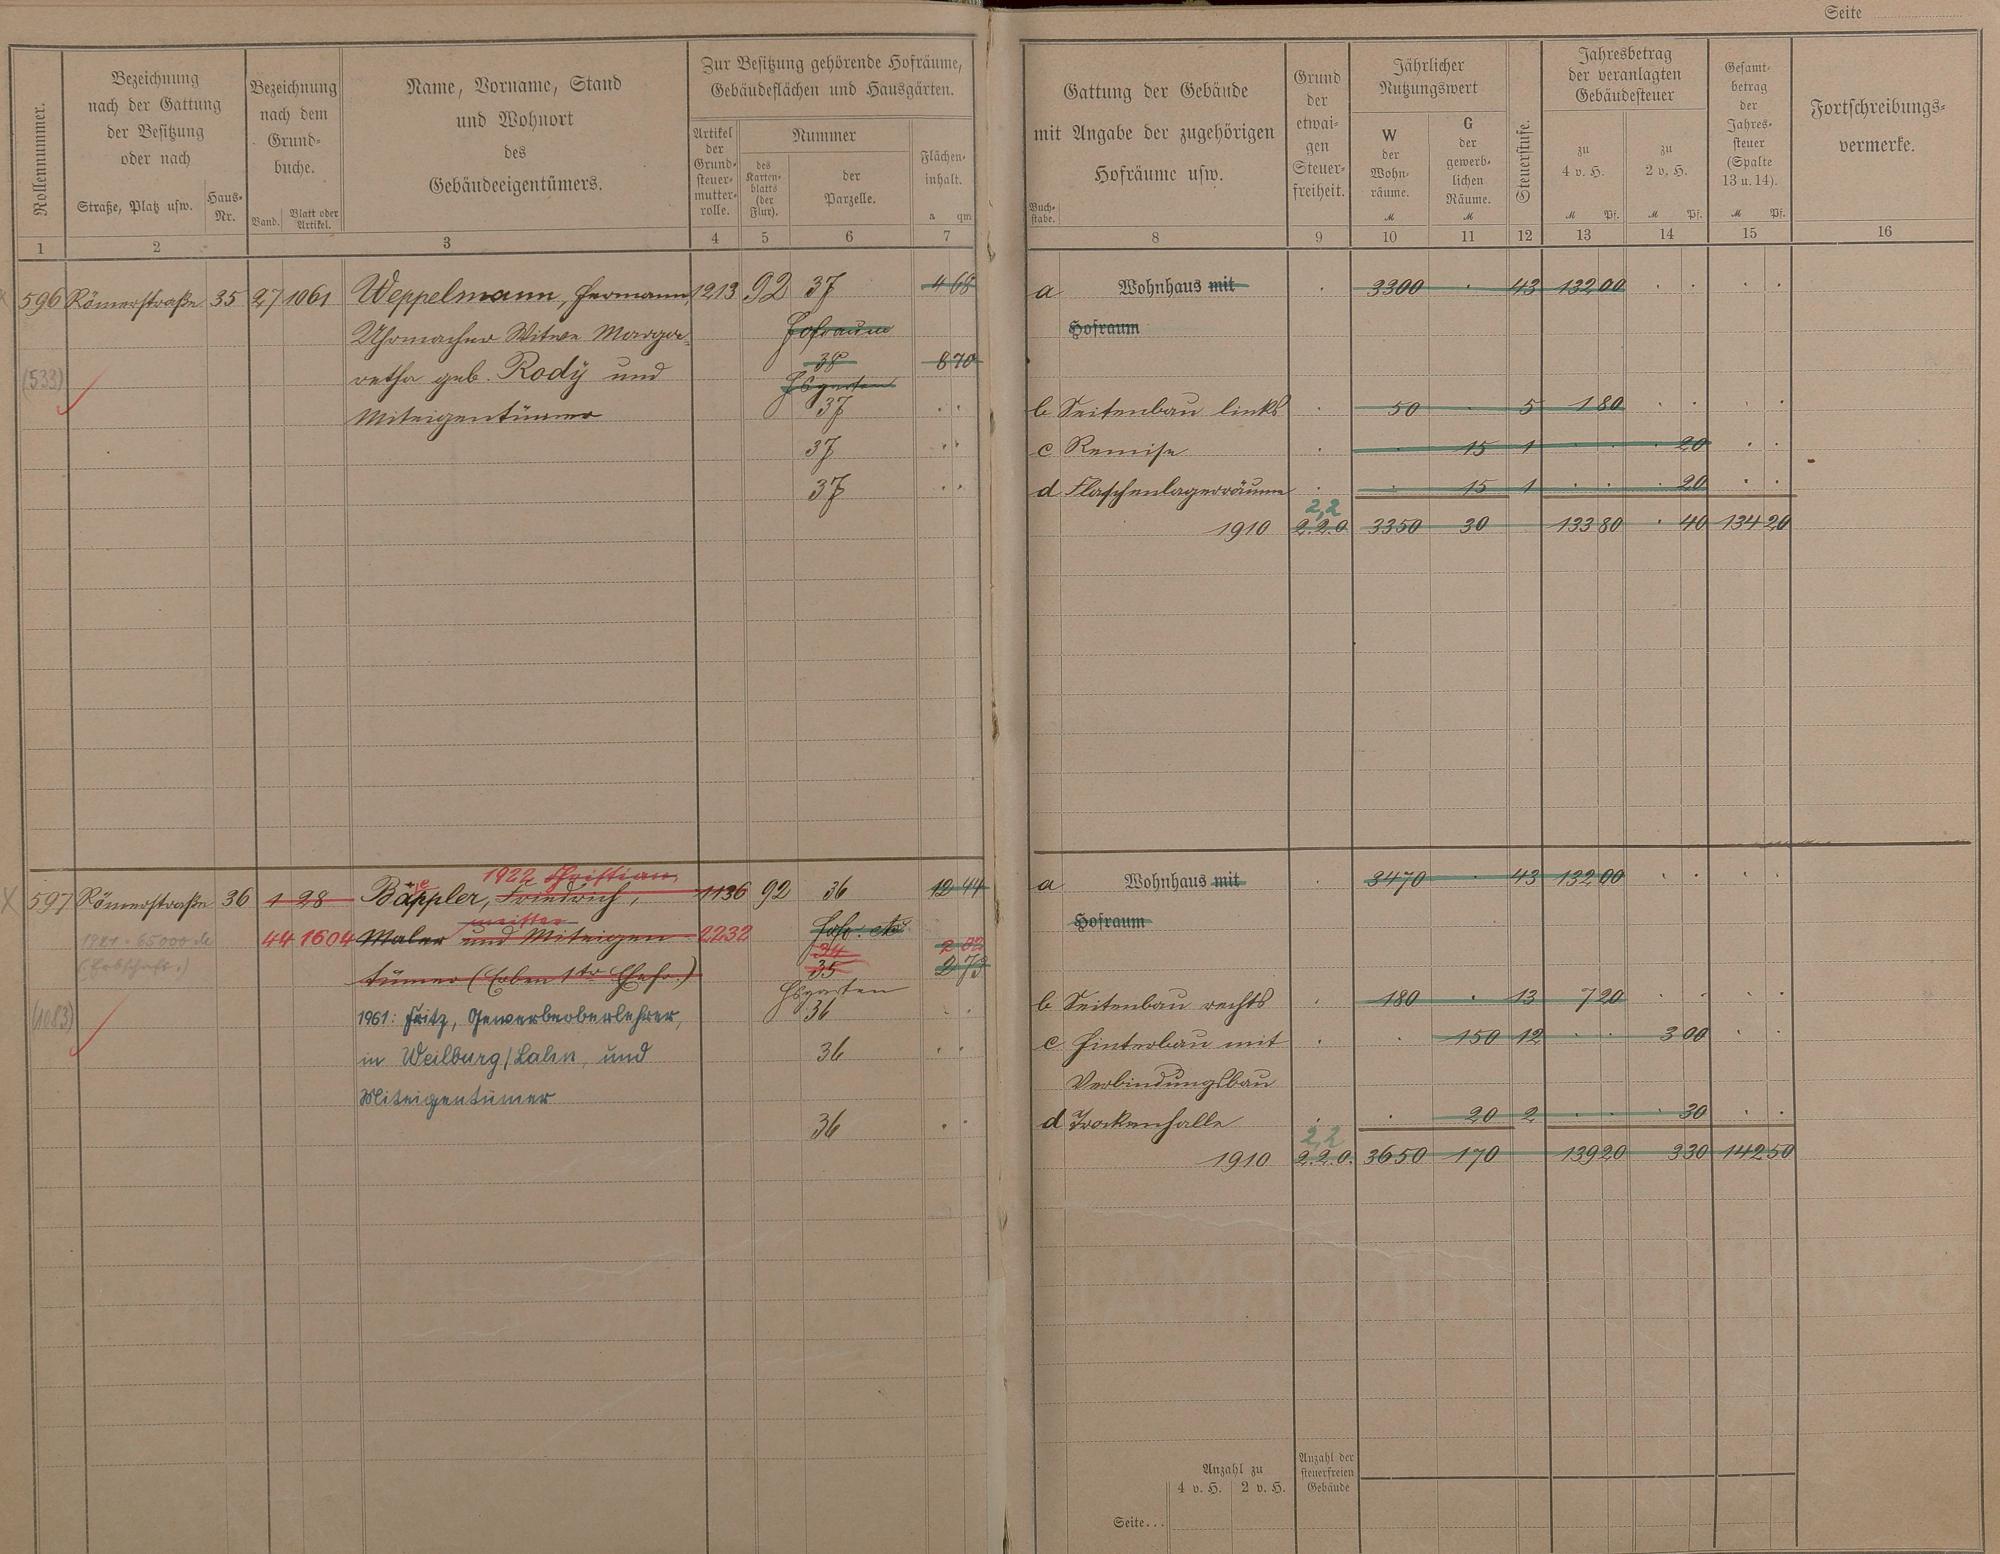 Seite
Rollennummer.
Bezeichnung nach der Gattung der Besitzung oder nach
Straße, Platz usw.
Haus-Nr.
Bezeichnung nach dem Grund-buche.
Band.
Blatt oder Artikel.
Name, Vorname, Stand und Wohnort des Gebäudeeigentümers.
Zur Besitzung gehörende Hofräume, Gebäudeflächen und Hausgärten.
Artikel der Grund-steuer-mutter-rolle.
Nummer
des Karten-blatts (der Flur).
der Parzelle.
Flächen-inhalt.
a qm
1 2 3 4 5 6 7
Gattung der Gebäude mit Angabe der zugehörigen Hofräume usw.
Buch-stabe.
Grund der etwai-gen Steuer-freiheit.
Jährlicher Nutzungswert
W der Wohn-räume.
M
G der gewerb-lichen Räume.
M
Steuerstufe.
Jahresbetrag der veranlagten Gebäudesteuer
zu 4 v. H.
M Pf.
zu 2 v. H.
M Pf.
Gesamt-betrag der Jahres-steuer (Spalte 13 u. 14).
M Pf.
Fortschreibungs-vermerke.
8 9 10 11 12 13 14 15 16
596 Römerstraße 35 27 1061 Weppelmann, Hermann, 1213 92 37 4 68
Uhrmacher Witwe Marga- Hofraum
38 8 70
(533) retha geb. Rody und Hsgarten
Miteigentümer 37
37
37
a Wohnhaus mit 3300 43 132 00
Hofraum
b Seitenbau links 50 5 1 80
c Remise 15 1 20
d Flaschenlagerräume 15 1 20
2,2
1910 2.2.0. 3350 30 133 80 40 134 20
1922 Christian
597 Römerstraße 36 1 28 Bäppler, Friedrich, 1136 92 36 12 44
meister
1921: 65000 M 44 1604 Maler und Miteigen- 2232 Hofr. etc.
34 2 02
(Erbschaft.) tümer (Erben 1ter Ehefr.) 35 2 73
Hsgarten
(1083) 1961: Fritz, Gewerbeoberlehrer, 36
in Weilburg/Lahn, und 36
Miteigentümer
36
a Wohnhaus mit 3470 43 132 00
Hofraum
b Seitenbau rechts 180 13 7 20
c Hinterbau mit 150 12 3 00
Verbindungsbau
d Trockenhalle 20 2 30
2,2
1910 2.2.0. 3650 170 139 20 3 30 142 50
Anzahl zu
4 v. H. 2 v. H.
Anzahl der steuerfreien Gebäude
Seite...